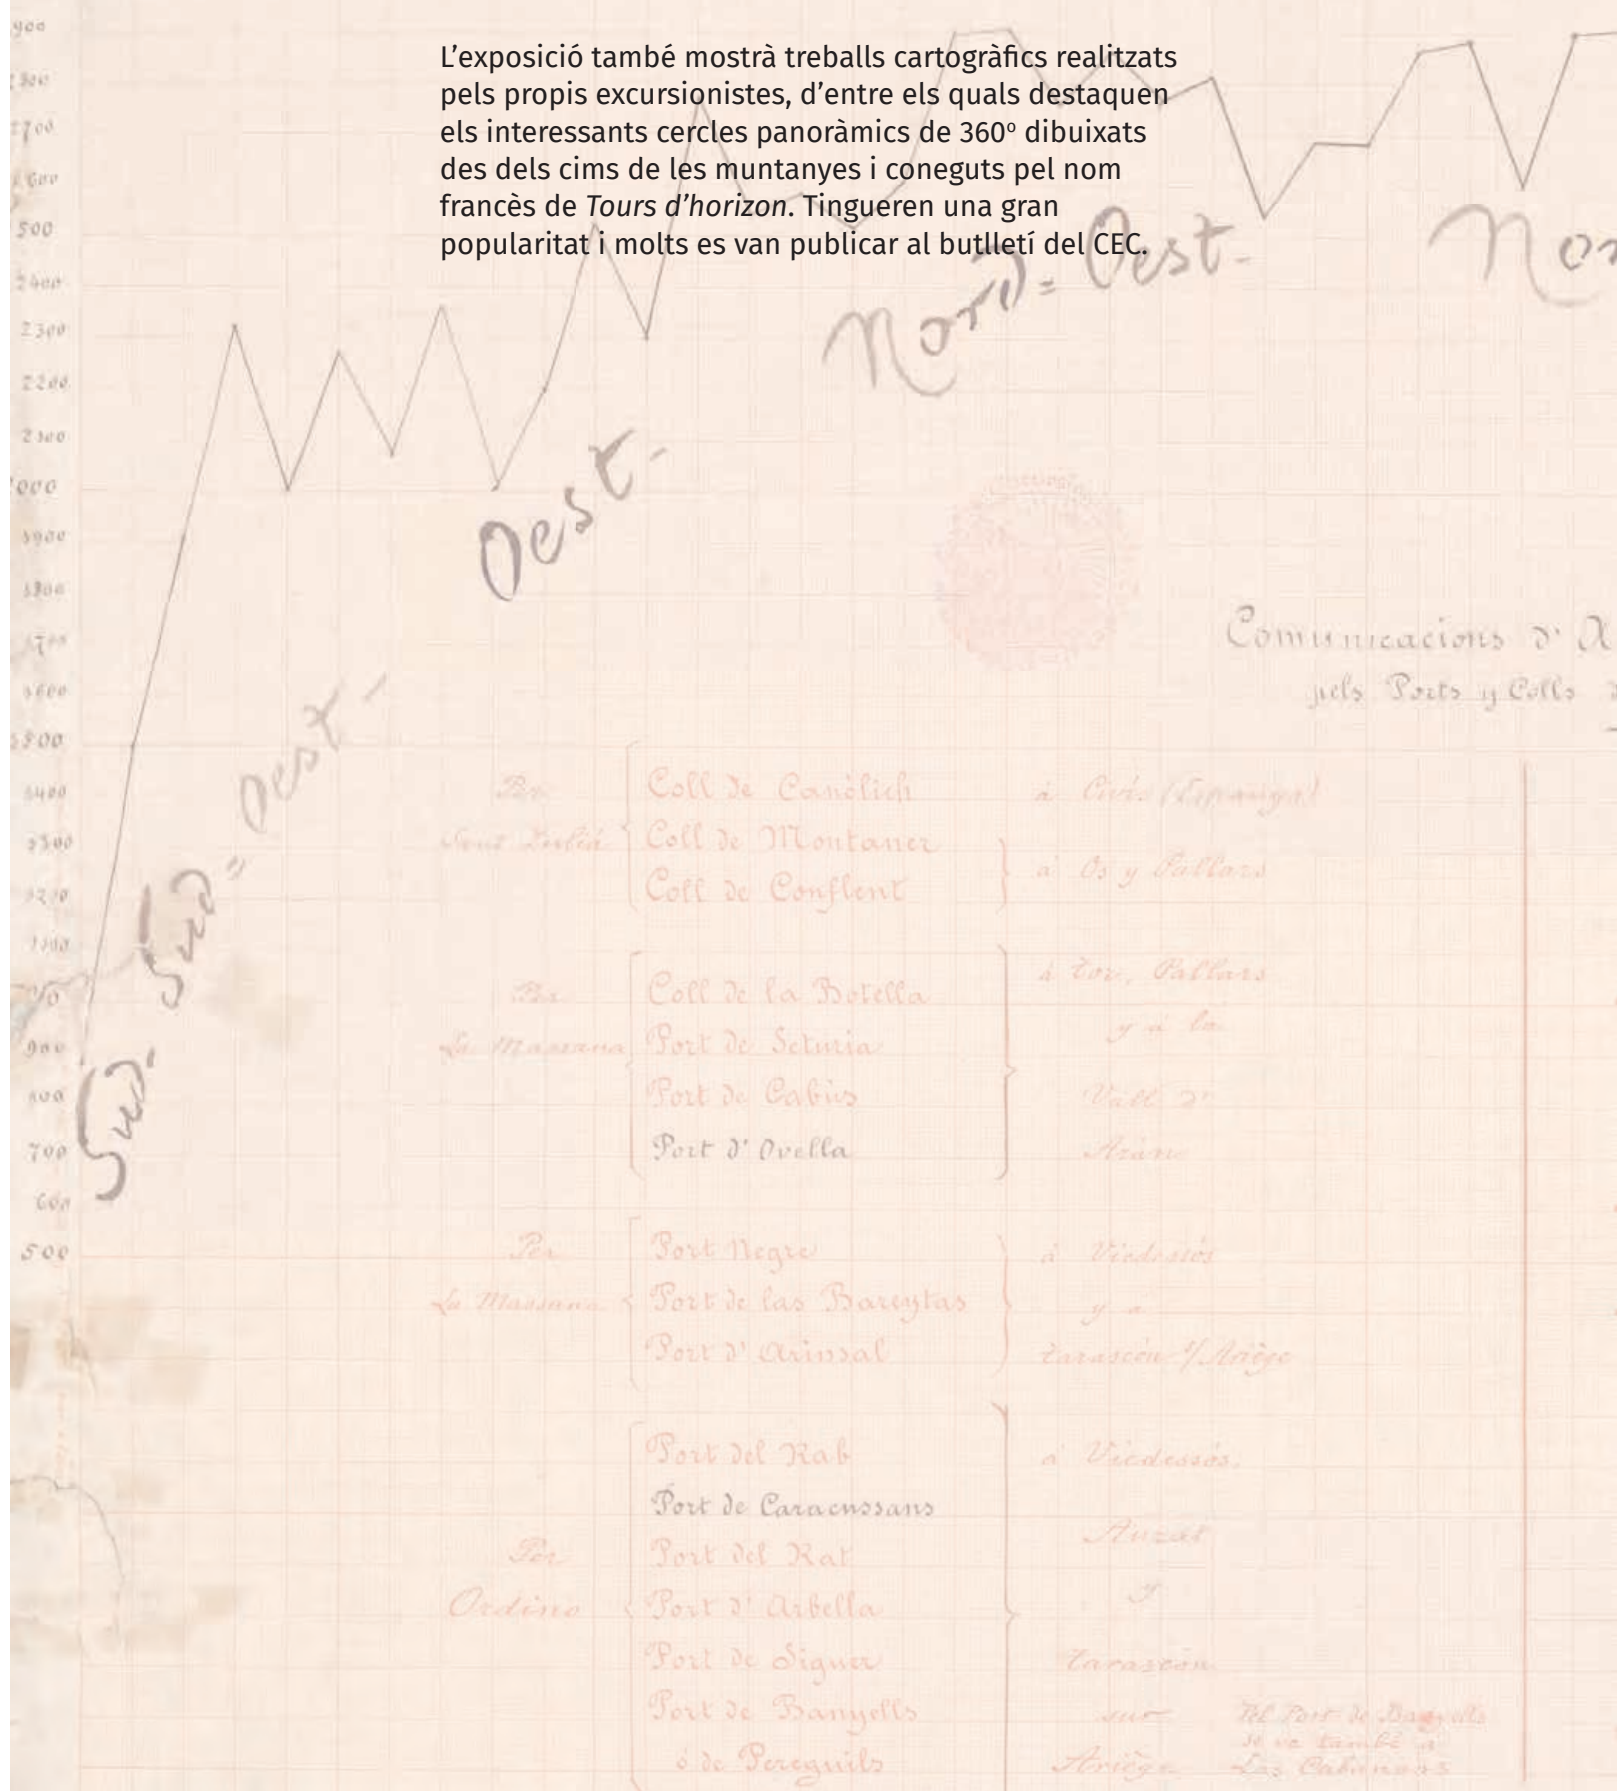 L’exposició també mostrà treballs cartogràfics realitzats
pels propis excursionistes, d’entre els quals destaquen
els interessants cercles panoràmics de 360º dibuixats
des dels cims de les muntanyes i coneguts pel nom
francès de Tours d’horizon. Tingueren una gran
popularitat i molts es van publicar al butlletí del CEC.
900
2700
500
2400
2300
2200
000
500
900
800
700
600
500
Sud.
Sud=Oest-
Oest-
Nord=Oest-
Nor
Comunicacions d'
pels Ports y Colls
Per
Sant Juliá
Coll de Canólich
à Civis (Espanya)
Coll de Montaner
Coll de Conflent
à Os y Pallars
Per
La Massana
Coll de la Botella
Port de Seturia
Port de Cabús
Port d' Ovella
à Tor, Pallars
y à la
Vall d'
Arán
Per
La Massana
Port Negre
Port de las Bareytas
Port d' Arinsal
à Vicdessós
y a
Tarascón s/ Ariège
Per
Ordino
Port del Rab
Port de Caracussans
Port del Rat
Port d' Arbella
Port de Siguer
Port de Banyells
ó de Pereguils
à Vicdessós.
Auzat
y
Tarascón
sur
Ariège
Pel Port de Banyells
se va també a
Las Cabannas